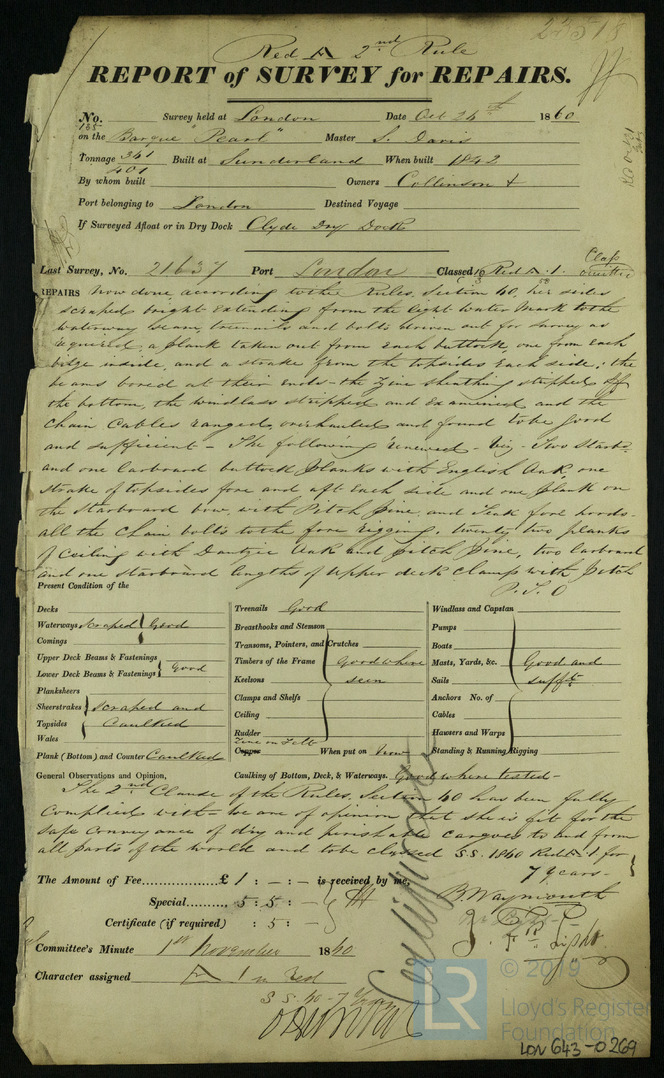 22518
Red A 2nd Rule
REPORT of SURVEY for REPAIRS.
No. 135 Survey held at London Date Oct 24th 1860
on the Barque "Pearl" Master S. Davis
Tonnage 341 Built at Sunderland When built 1842
401
By whom built Owners Collinson +
Port belonging to London Destined Voyage
If Surveyed Afloat or in Dry Dock Clyde Dry Dock
Last Survey, No. 21637 Port London Classed Red A. 1.
REPAIRS Now done according to the Rules, Section 40, her sides
scraped bright extending from the light water mark to the
waterway seam, treenails and bolts driven out for survey as
required, a plank taken out from each buttock, one from each
bilge inside, and a strake from the topsides each side; the
beams bored at their ends - the Zinc sheathing stripped off
the bottom, the windlass stripped and examined, and the
chain Cables ranged, overhauled and found to be good
and sufficient - The following renewed - Viz - Two Starbd
and one Larboard buttock planks with English Oak, one
strake of topsides fore and aft each side and one plank on
the Starboard bow, with Pitch Pine, and Teak fore hoods -
all the Chain bolts to the fore rigging, twenty two planks
of Ceiling with Dantzic Oak and pitch pine, two larboard
and one starboard lengths of upper deck Clamp with pitch
P.T.O
Present Condition of the
Decks
Waterways Scraped Good
Comings
Upper Deck Beams & Fastenings
Lower Deck Beams & Fastenings Good
Planksheers
Sheerstrakes Scraped and
Topsides Caulked
Wales
Plank (Bottom) and Counter Caulked
Treenails Good
Breasthooks and Stemson
Transoms, Pointers, and Crutches
Timbers of the Frame Good where
Keelsons seen
Clamps and Shelfs
Ceiling
Rudder
Zinc on Felt
Copper When put on Now
Windlass and Capstan
Pumps
Boats
Masts, Yards, &c. Good and
Sails suffit
Anchors No. of
Cables
Hawsers and Warps
Standing & Running Rigging
General Observations and Opinion, Caulking of Bottom, Deck, & Waterways. Good where tested -
The 2nd Clause of the Rules, Section 40 has been fully
Complied with - we are of opinion that she is fit for the
safe Conveyance of dry and perishable Cargoes to and from
all parts of the world and to be classed S.S. 1860 Red A 1 for
7 years -
The Amount of Fee £ 1 : - : - is received by me,
Special 5 : 5 : -
Certificate (if required) : 5 : -
B. Waymouth
Committee's Minute 1st November 1860
Character assigned A 1 in Red
S.S. 60 - 7 Years
© 2019
LR
Lloyd's Register
Foundation
LON 643-0269